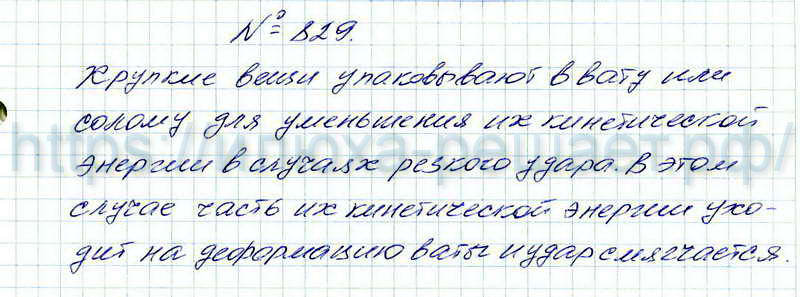 № 829.
Хрупкие вещи упаковывают в вату или
солому для уменьшения их кинетической
энергии в случаях резкого удара. В этом
https://йоха-решает.рф/
случае часть их кинетической энергии ухо-
дит на деформацию ваты и удар смягчается.